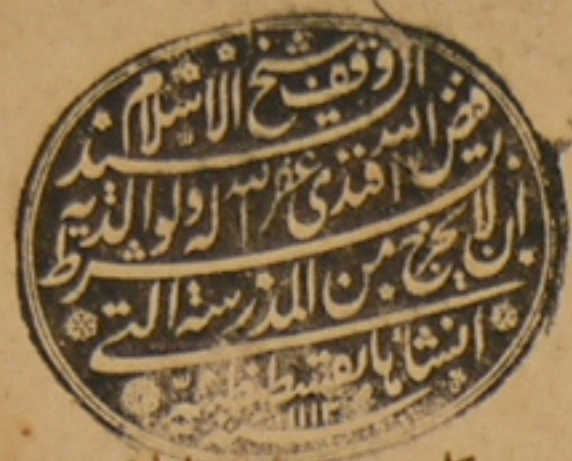 وقف شيخ الاسلام
السيد فيض الله افندى غفر الله له ولوالديه
بشرط ان لا يخرج من المدرسة التى
انشأها بقسطنطينية
١١١٢